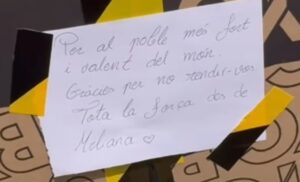 Per al poble més fort
i valent del món.
Gràcies per no rendir-vos
Tota la força des de
Meliana ♡